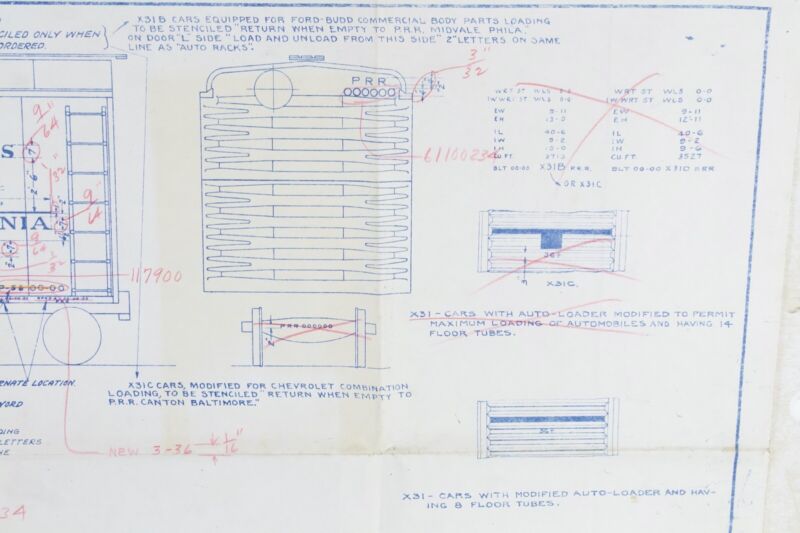 X31B CARS EQUIPPED FOR FORD-BUDD COMMERCIAL BODY PARTS LOADING
TO BE STENCILED "RETURN WHEN EMPTY TO P.R.R. MIDVALE PHILA."
ON DOOR "L" SIDE "LOAD AND UNLOAD FROM THIS SIDE" 2" LETTERS ON SAME
LINE AS "AUTO RACKS".
CILED ONLY WHEN
ORDERED.
3"
32
PRR
000000
61100234
9"
64
S
7"
1"
32
2'-6"
9"
64
NIA
9
64
1
32
117900
P-58 00-00
WRT ST WLS 0-0
EW
EH
IL 40-6
IW 9-2
IH
CU.FT.
BLT 00-00 X31B P.R.R.
OR X31C
WRT ST WLS 0-0
IW WRT ST WLS 0-0
EW 9-11
EH 12-11
IL 40-6
IW 9-2
IH 9-6
CU.FT. 3527
BLT 00-00 X31D PRR
36F
3"
X31C.
X31 - CARS WITH AUTO-LOADER MODIFIED TO PERMIT
MAXIMUM LOADING OF AUTOMOBILES AND HAVING 14
FLOOR TUBES.
PRR 000000
2"
RNATE LOCATION.
WORD
DING
LETTERS
NE
X31C CARS, MODIFIED FOR CHEVROLET COMBINATION
LOADING, TO BE STENCILED "RETURN WHEN EMPTY TO
P.R.R. CANTON BALTIMORE."
NEW 3-36 1"
16
34
36F
X31 - CARS WITH MODIFIED AUTO-LOADER AND HAV-
ING 8 FLOOR TUBES.